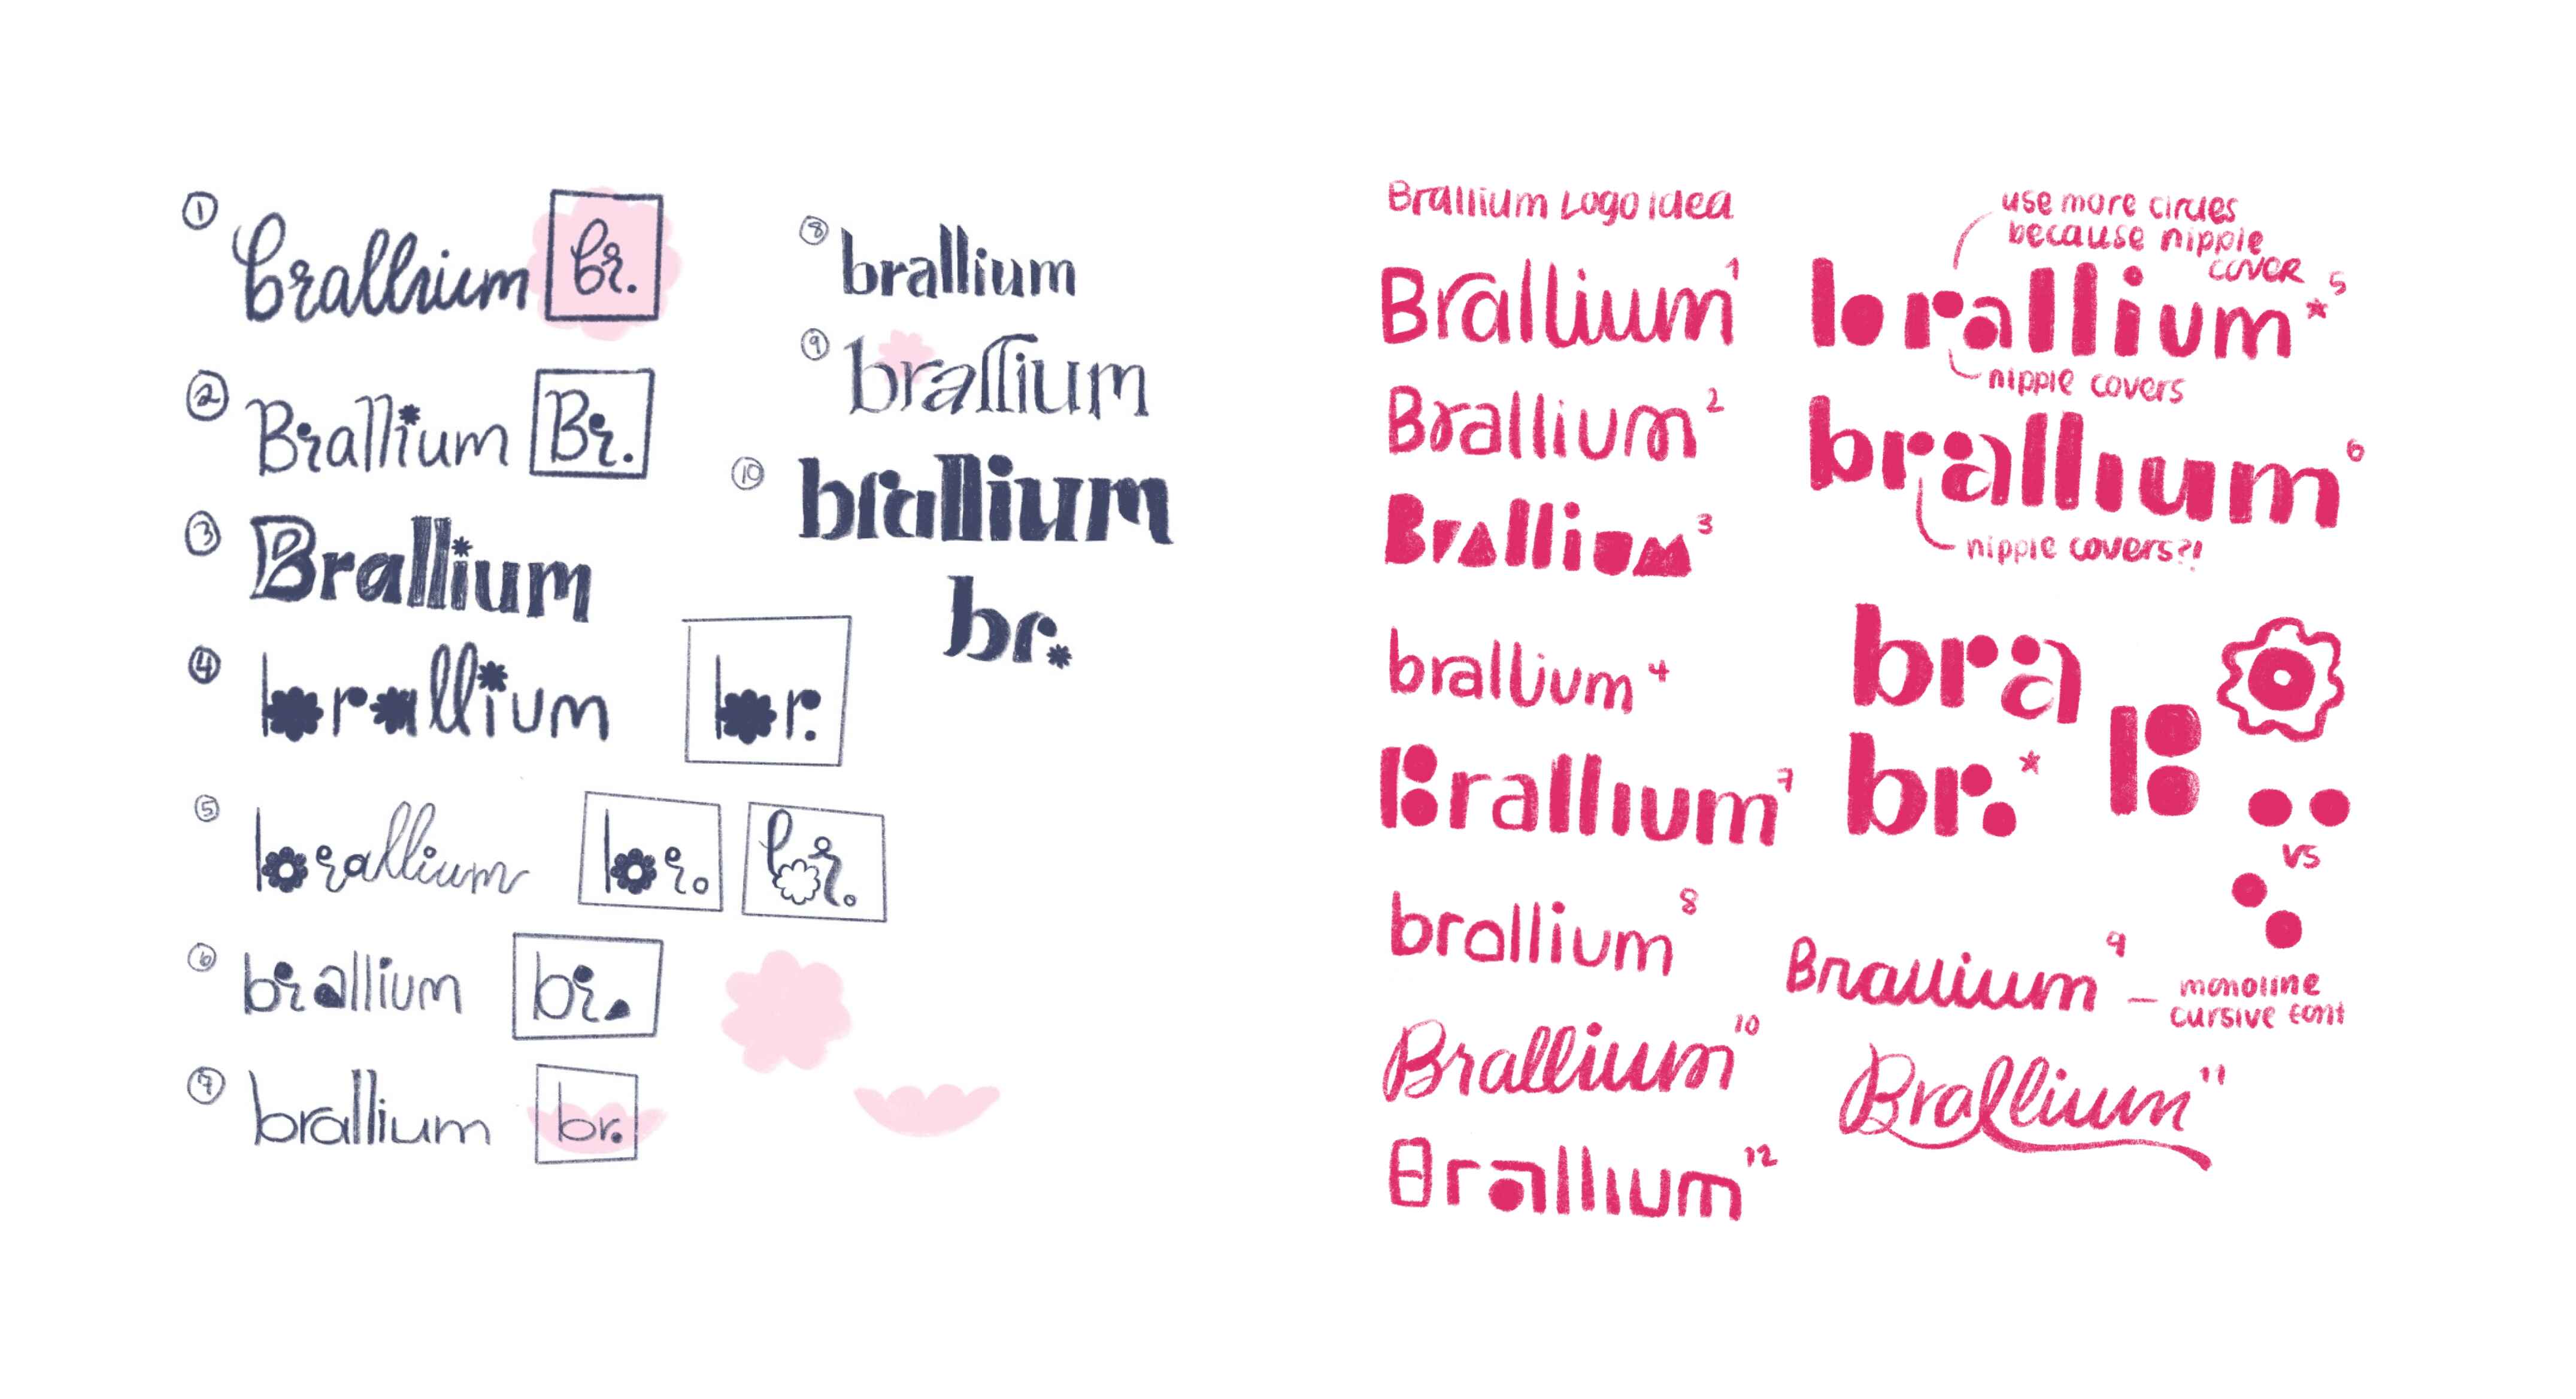 1 brallium br.
2 Brallium Br.
3 Brallium
4 brallium br.
5 brallium br. br.
6 brallium br.
7 brallium br.
8 brallium
9 brallium
10 brallium
br.*
Brallium Logo idea
Brallium 1
Brallium 2
Brallium 3
brallium 4
Brallium 7
brallium 8
Brallium 10
Brallium 12
use more circles
because nipple
cover
brallium* 5
nipple covers
brallium 6
nipple covers?!
bra
br.*
B
vs
Brallium 9 – monoline
cursive font
Brallium 11